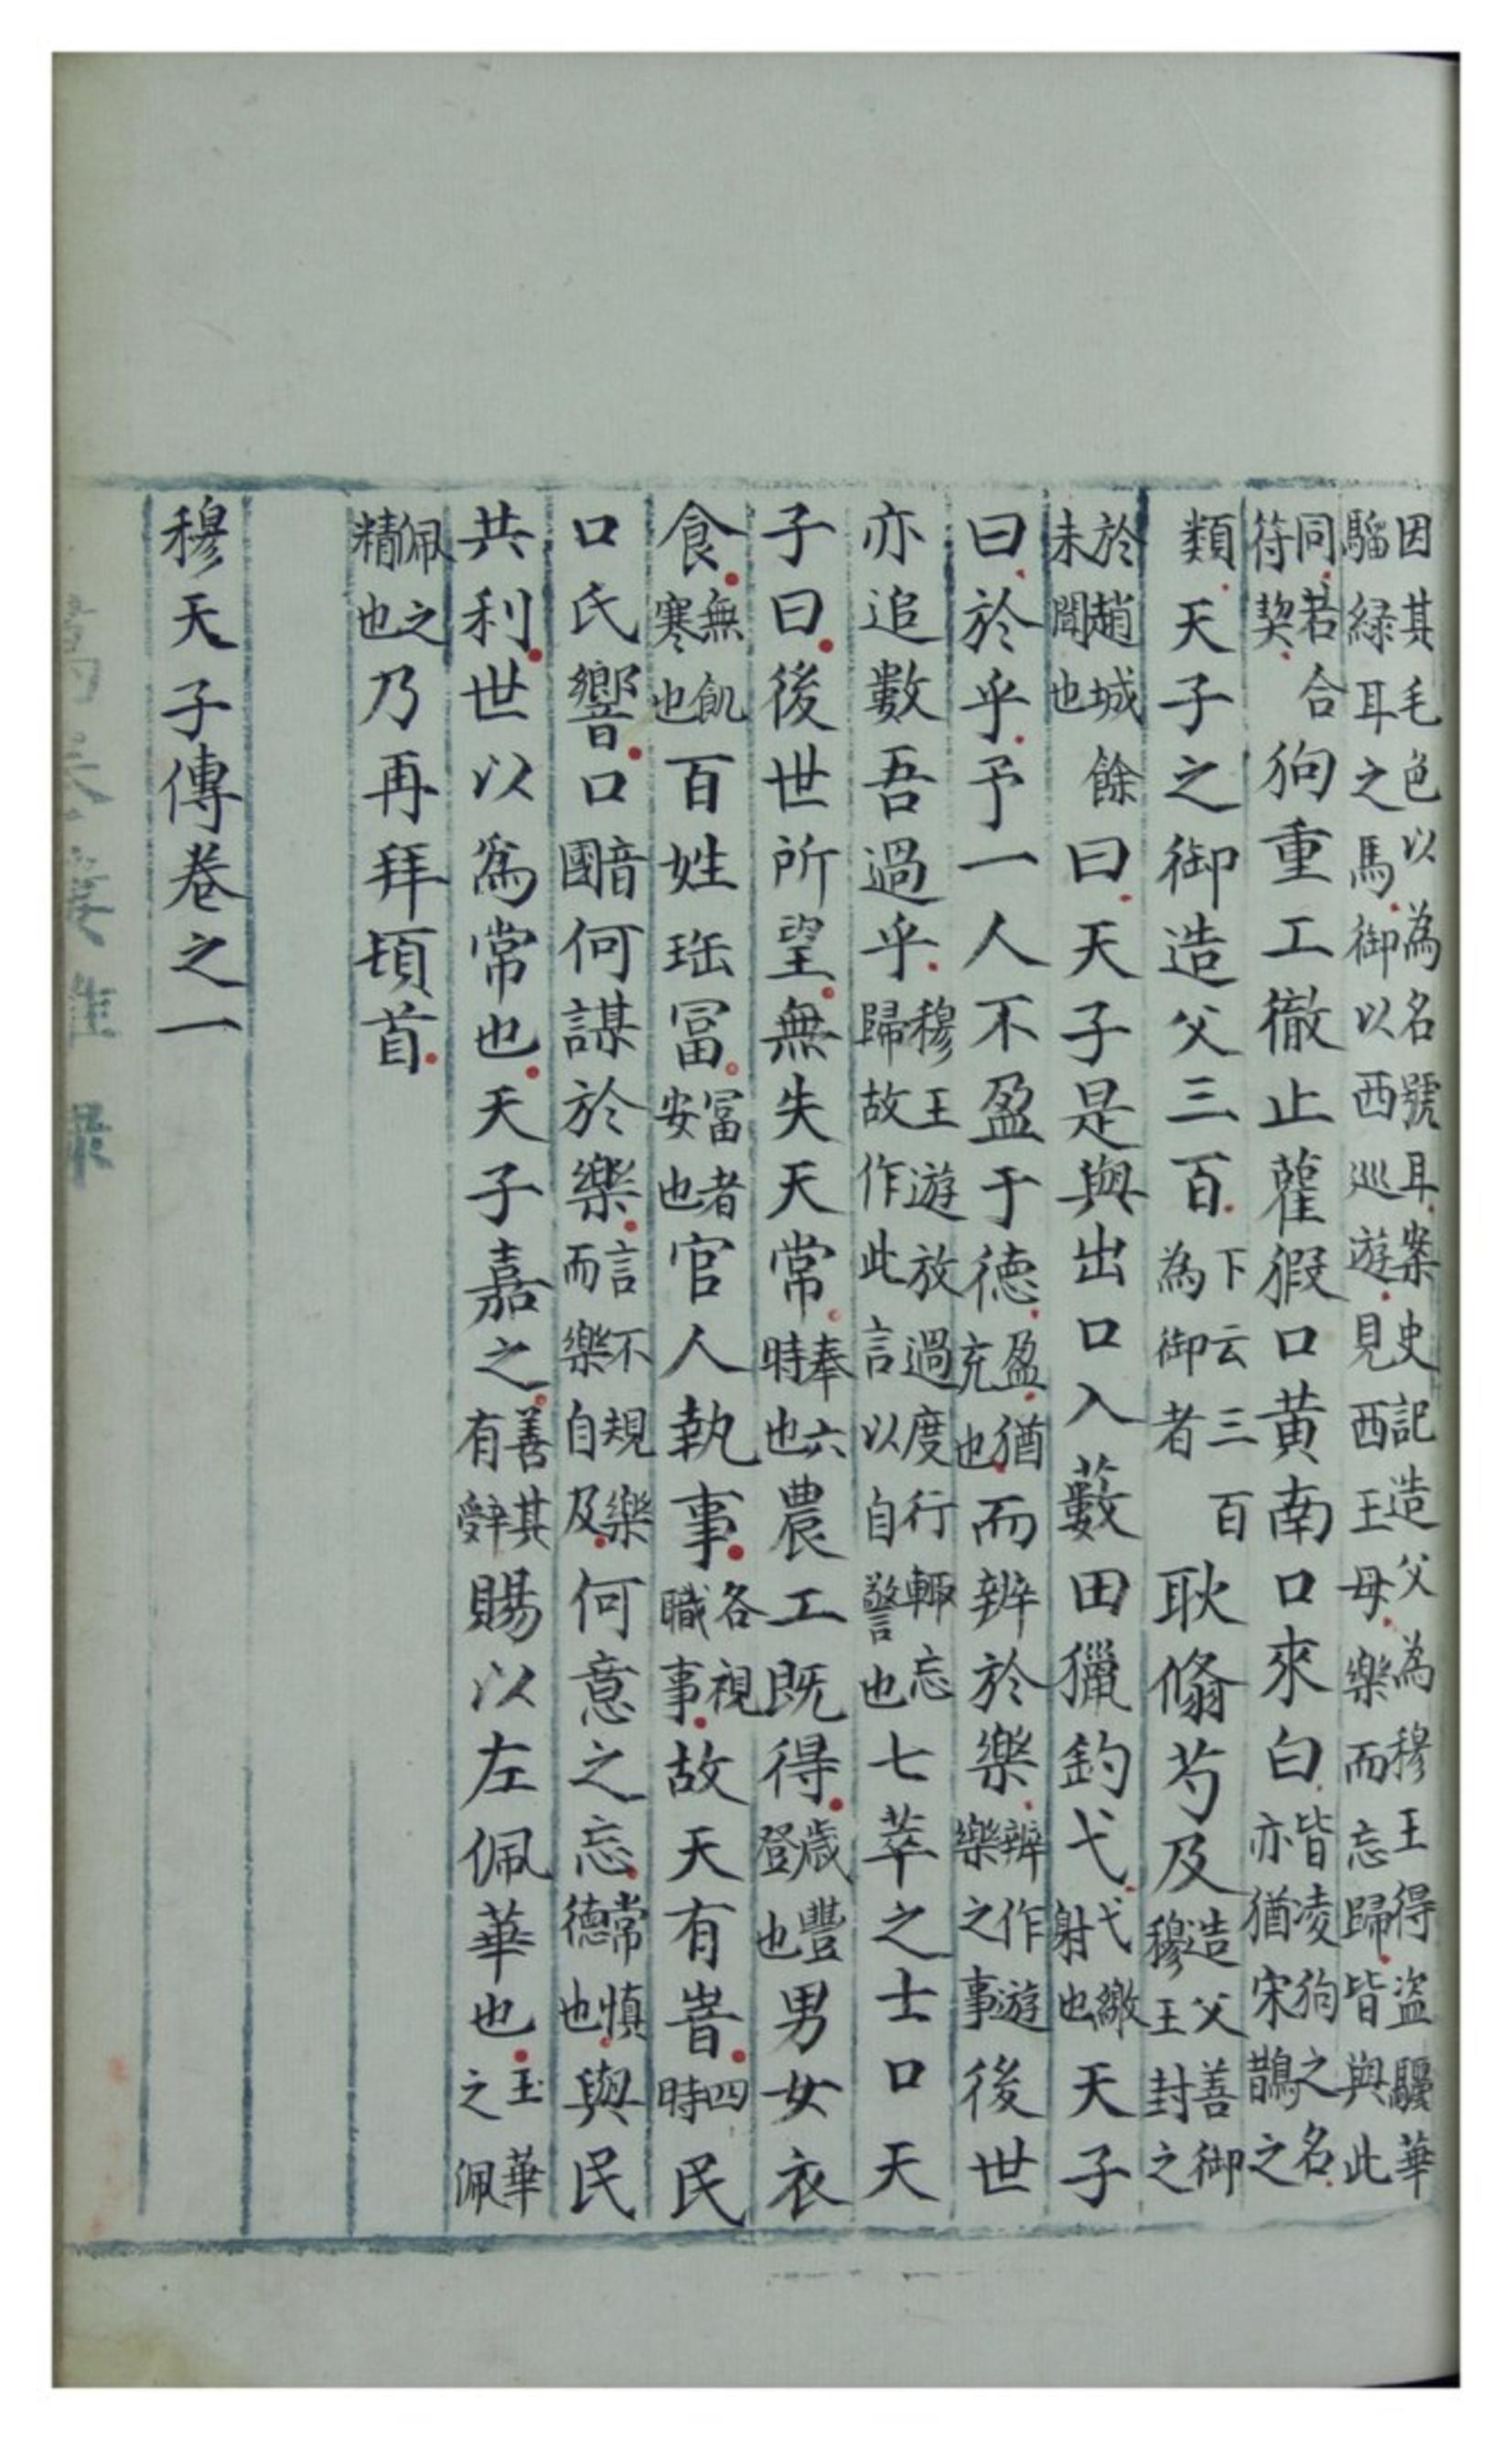 因其毛色以為名號耳案史記造父為穆王得盗驪華
騮緑耳之馬御以西巡遊見西王母樂而忘歸皆與此
同若合
符契
狗重工徹止雚猳口黃南口來白
皆凌狗之名
亦猶宋鵲之
類天子之御造父三百
下云三百
為御者
耿翛芍及
造父善御
穆王封之
於趙城餘
未聞也
曰天子是與出口入藪田獵釣弋
弋繳
射也
天子
曰於乎予一人不盈于德
盈猶
充也
而辨於樂
辨作遊
樂之事
後世
亦追數吾過乎
穆王遊放過度行輒忘
歸故作此言以自警也
七萃之士口天
子曰後世所望無失天常
奉六
時也
農工既得
歲豐
登也
男女衣
食
無飢
寒也
百姓珤冨
冨者
安也
官人執事
各視
職事
故天有旹
四
時
民
口氏響口
音
國
何謀於樂
言不規樂
而樂自及
何意之忘
常慎
德也
與民
共利世以為常也天子嘉之
善其
有辭
賜以左佩華也
玉華
之佩
佩之
精也
乃再拜頓首
穆天子傳卷之一